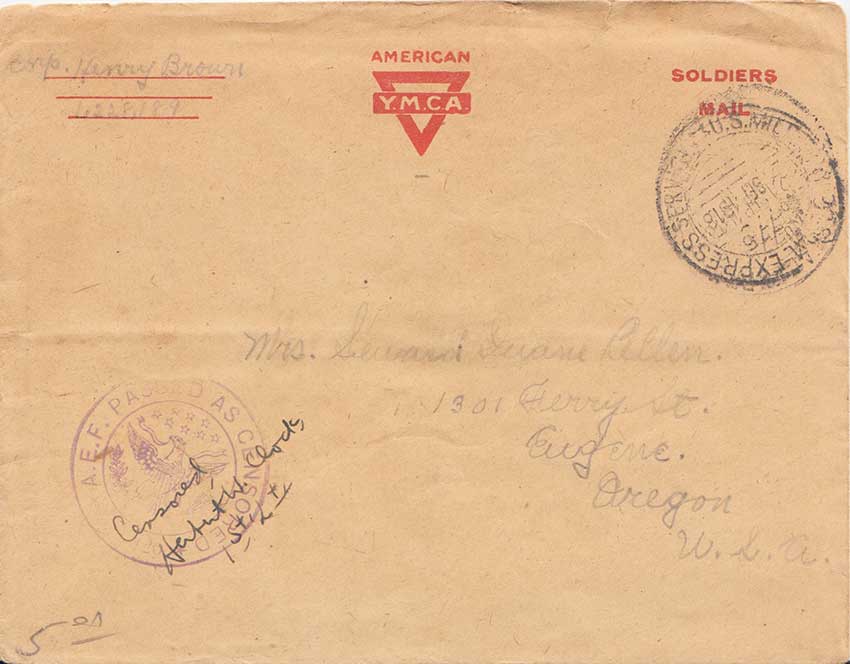 Corp. Henry Brown
1,228,189
AMERICAN
Y.M.C.A.
SOLDIERS
MAIL
U.S. MIL
AL EXPRESS SERVICE
Mrs. Duane Allen.
1301 Ferry St.
Eugene.
Oregon
U.S.A.
A.E.F. PASSED AS CENSORED
Censored,
Herbert W. Clock
1st Lt
5